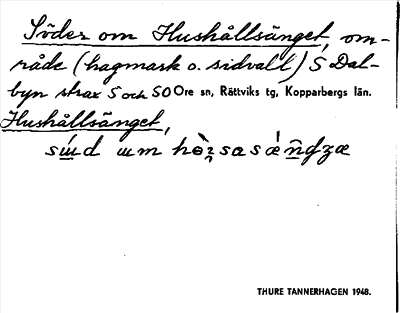 Söder om Hushållsänget, om-
råde (hagmark o. sidvall) S Dal-
byn strax S och SO Ore sn, Rättviks tg, Kopparbergs län.
Hushållsänget,
THURE TANNERHAGEN 1948.